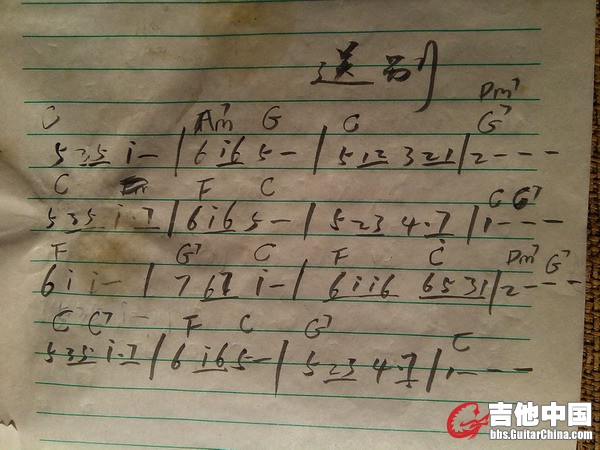 送别
Dm7
C Am7 G C G7
5 35 i - | 6 i6 5 - | 5 12 3 21 | 2 - - -
C F C C G7
5 35 i · 7 | 6 i6 5 - | 5 23 4 · 7 | 1 - - -
F G7 C F C Dm7 G7
6 i i - | 7 67 i - | 6 i i 6 6 5 3 1 | 2 - - -
C C7 F C G7 C
5 35 i · 7 | 6 i6 5 - | 5 23 4 · 7 | 1 - - -
吉他中国
bbs.GuitarChina.com